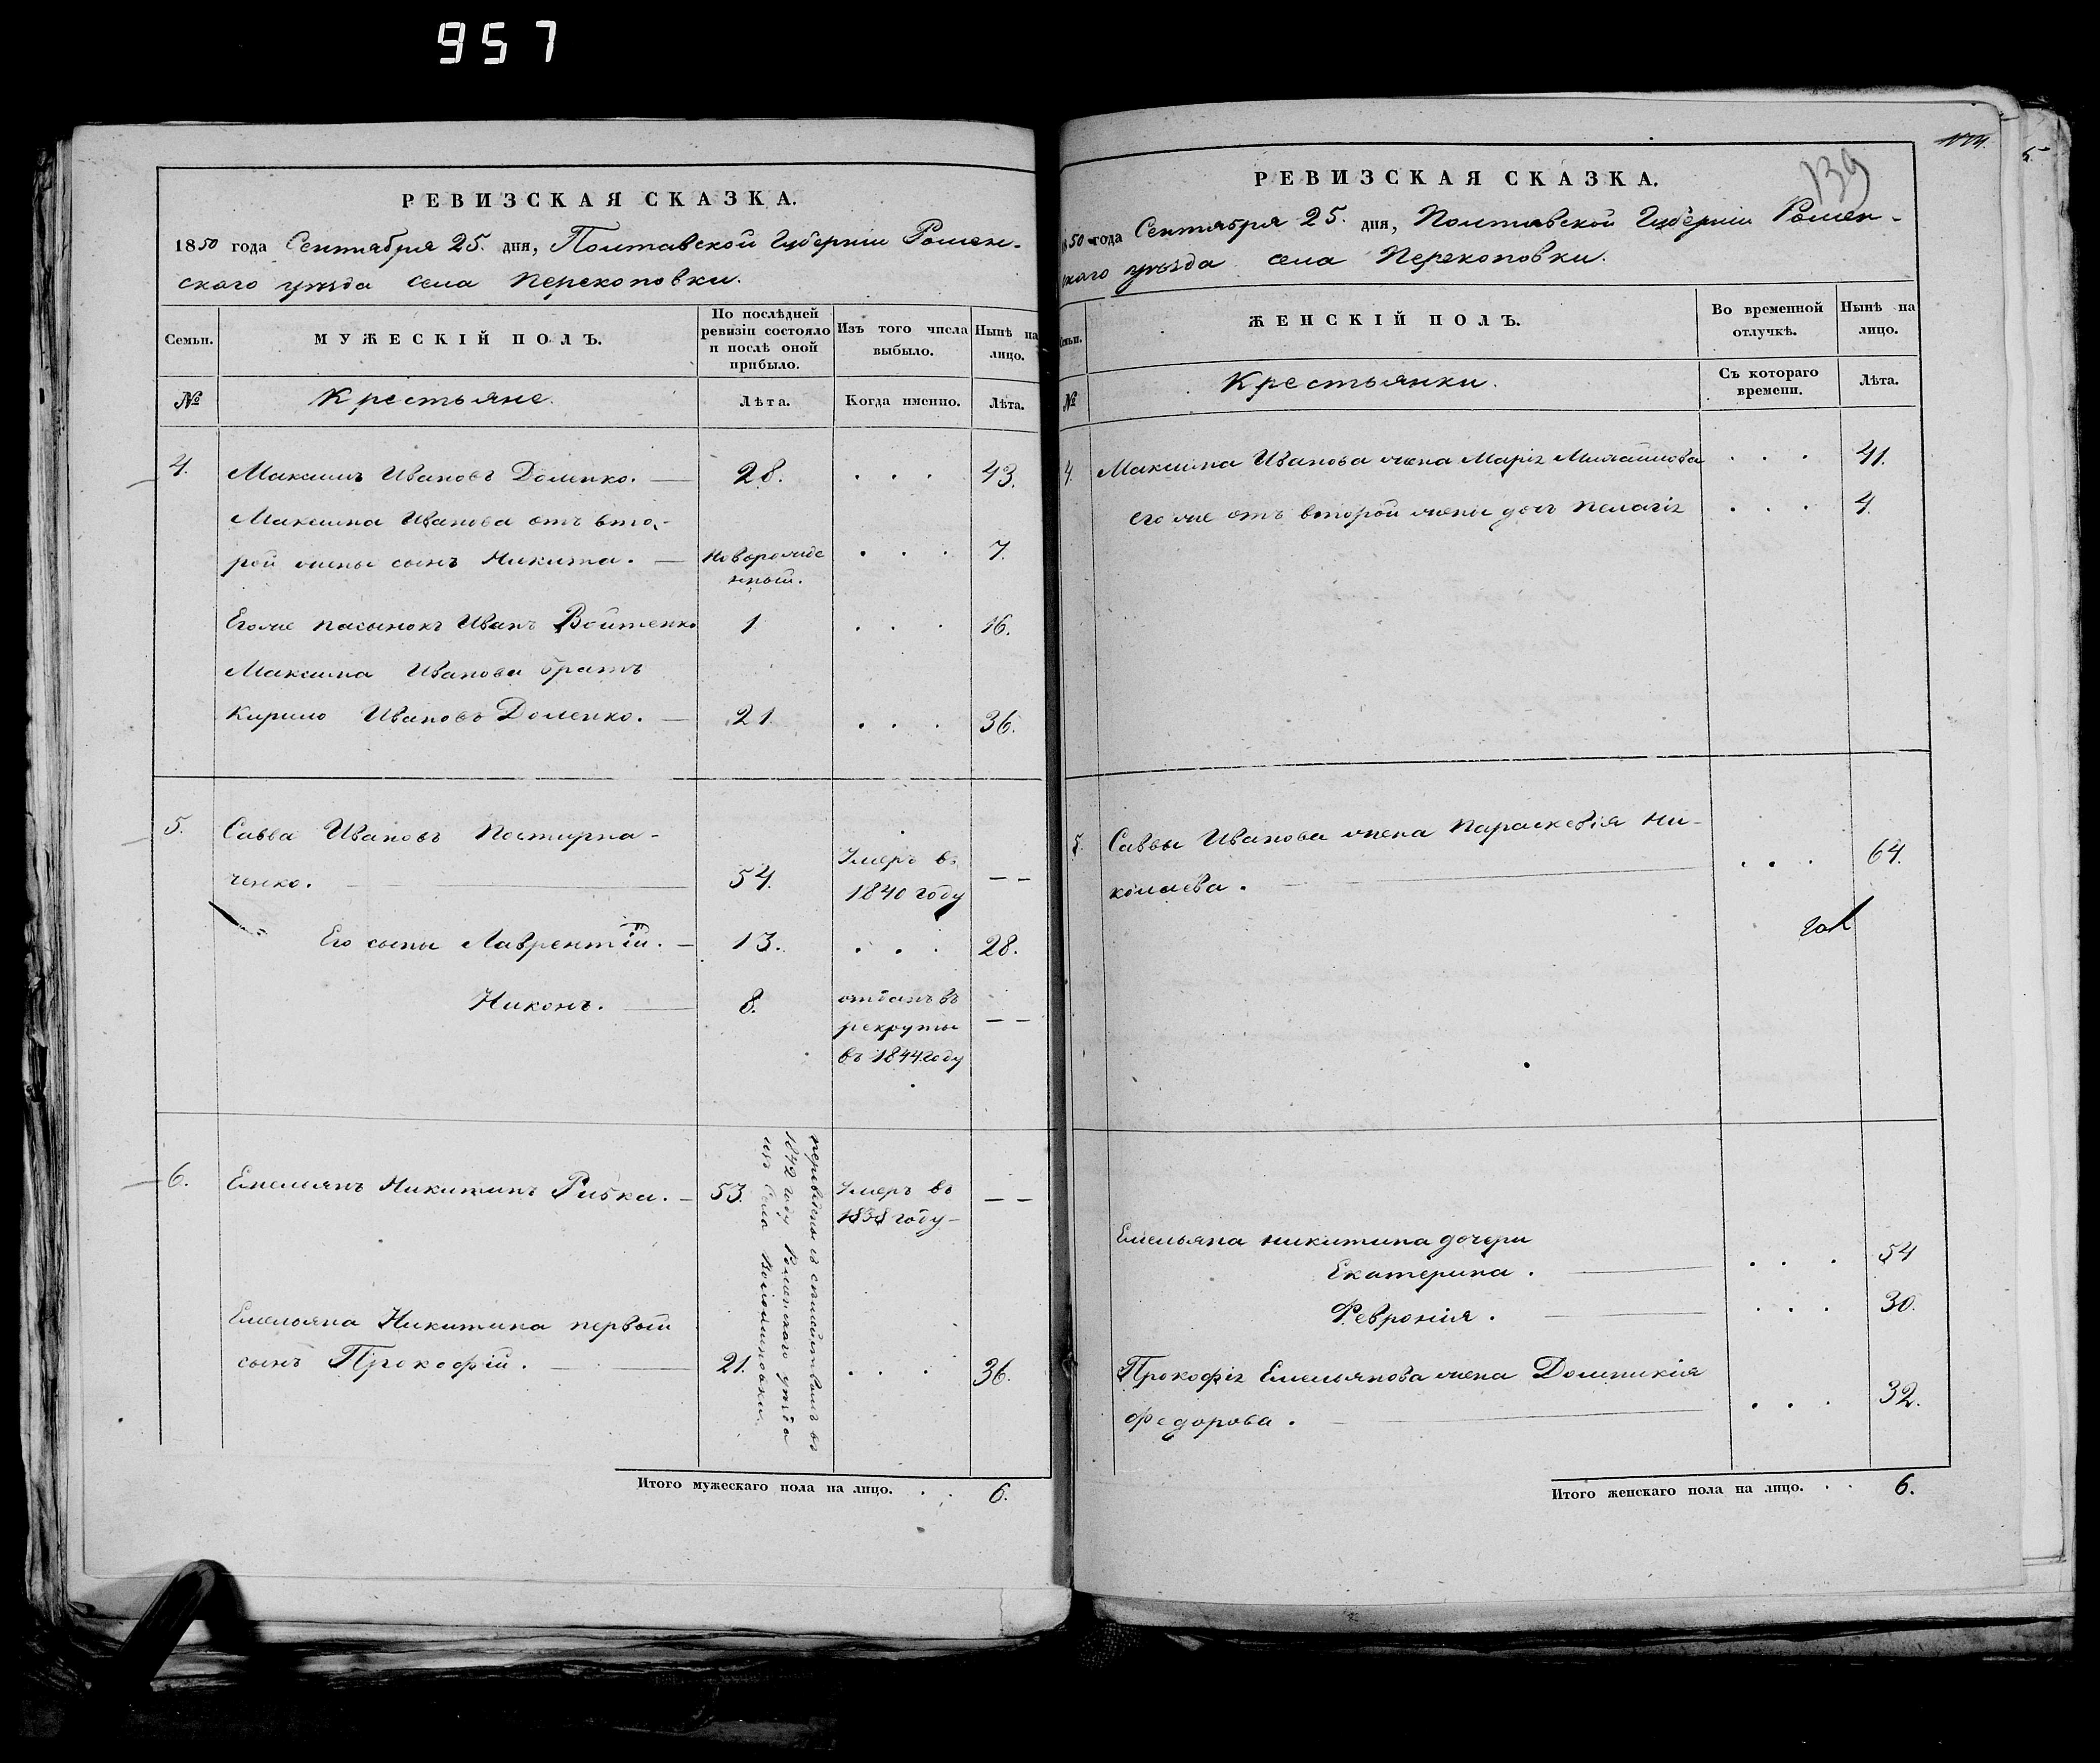 957
РЕВИЗСКАЯ СКАЗКА.
1850 года Сентября 25. дня, Полтавской Губерніи Ромен-
скаго уѣзда села Перекоповки.
Семьи.
МУЖЕСКІЙ ПОЛЪ.
По послѣдней
ревизіи состояло
и послѣ оной
прибыло.
Изъ того числа
выбыло.
Нынѣ на
лицо.
№
Крестьяне.
Лѣта.
Когда именно.
Лѣта.
4. Максимъ Ивановъ Доменко. 28. . . . 43.
Максима Иванова отъ вто-
рой жены сынъ Никита. Новорожде . . . 7.
нный.
Егоже пасынокъ Иванъ Войтенко 1 . . . 16.
Максима Иванова братъ
Кирило Ивановъ Доменко. 21. . . . 36.
5. Савва Ивановъ
ченко. 54. Умеръ въ — —
1840 году
Его сыны Лаврентій. 13. . . . 28.
Никонъ. 8. отданъ въ
рекруты — —
въ 1844 году
6. Емельянъ Никитинъ Рибка. 53. Умеръ въ — —
1838 году
Емельяна Никитина первый
сынъ Прокофій. 21. . . . 36.
переведены съ семействомъ въ
1842 году Роменскаго уѣзда
изъ села
Итого мужескаго пола на лицо. . . 6.
139
РЕВИЗСКАЯ СКАЗКА.
1850 года Сентября 25. дня, Полтавской Губерніи Ромен-
скаго уѣзда села Перекоповки.
Семьи.
ЖЕНСКІЙ ПОЛЪ.
Во временной
отлучкѣ.
Нынѣ на
лицо.
№
Крестьянки.
Съ котораго
времени.
Лѣта.
4. Максима Иванова жена Марія . . . 41.
его же отъ второй жены дочь Пелагія . . . 4.
5. Саввы Иванова жена Параскевія Ни-
колаева. . . . 64.
Емельяна Никитина дочери
Екатерина. . . . 54
Февронія. . . . 30.
Прокофія Емельянова жена Домникія
Федорова. . . . 32.
Итого женскаго пола на лицо. . . 6.